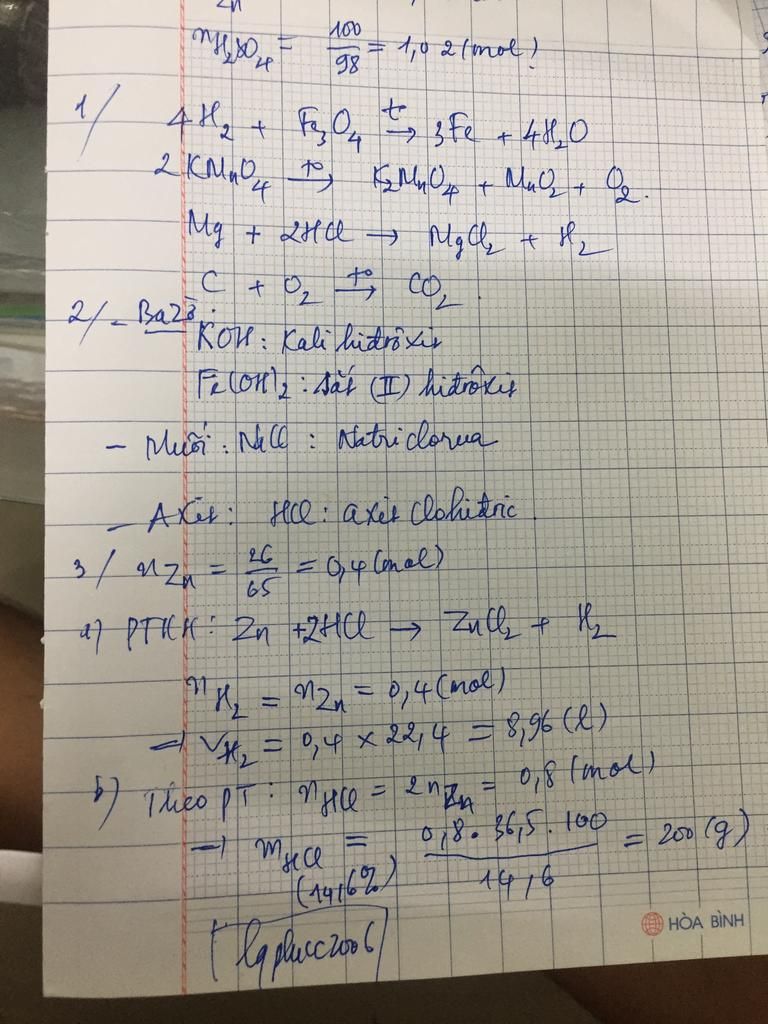 Zn
nH₂SO₄ = 100/98 = 1,02 (mol)
1/ 4H₂ + Fe₃O₄ →t° 3Fe + 4H₂O
2KMnO₄ →t° K₂MnO₄ + MnO₂ + O₂.
Mg + 2HCl → MgCl₂ + H₂
C + O₂ →t° CO₂.
2/ - Bazơ:
KOH: Kali hiđrôxit
Fe(OH)₂: sắt (II) hiđrôxit
- Muối: NaCl: Natri clorua
- Axit: HCl: axit clohiđric.
3/ nZn = 26/65 = 0,4 (mol)
a) PTHH: Zn + 2HCl → ZnCl₂ + H₂
nH₂ = nZn = 0,4 (mol)
⇒ VH₂ = 0,4 × 22,4 = 8,96 (l)
b) Theo PT: nHCl = 2nZn = 0,8 (mol)
→ mHCl (14,6%) = 0,8 . 36,5 . 100 / 14,6 = 200 (g)
HÒA BÌNH